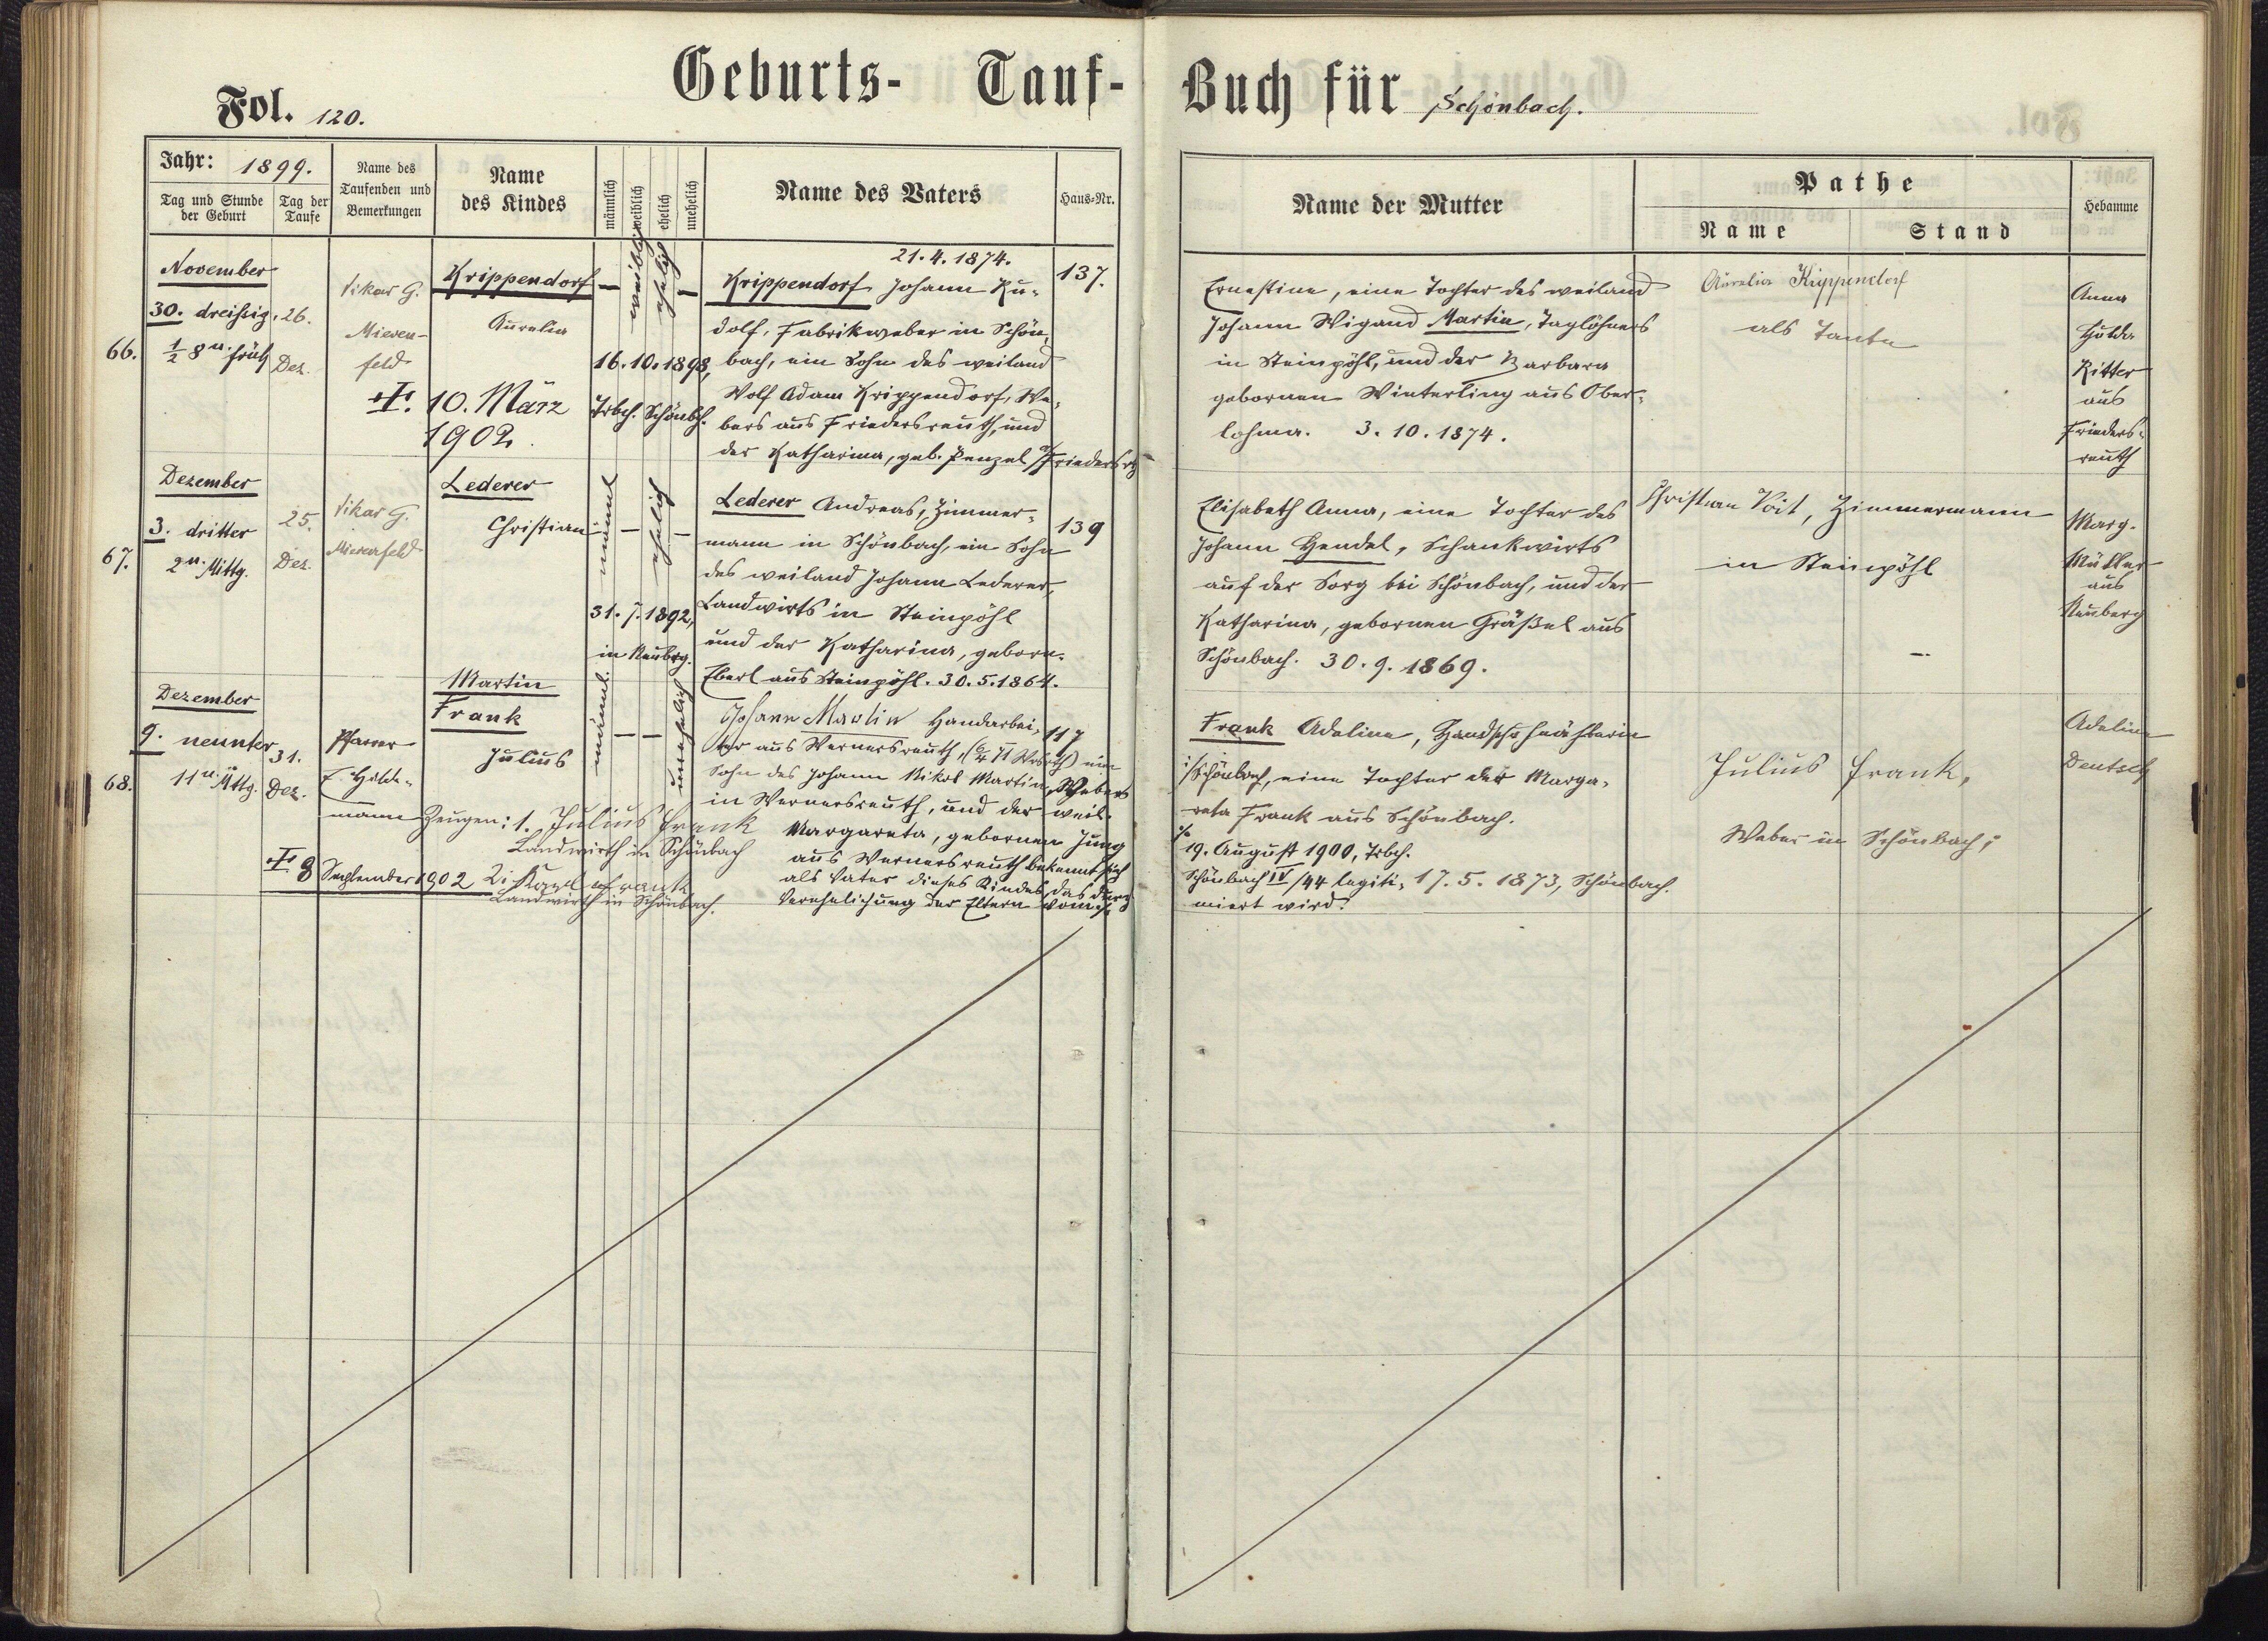 Geburts- Tauf-Buch für Schönbach.
Fol. 120.
Jahr: 1899.
Tag und Stunde der Geburt
Tag der Taufe
Name des Taufenden und Bemerkungen
Name des Kindes
männlich
weiblich
ehelich
unehelich
Name des Vaters
Haus-Nr.
Name der Mutter
Pathe
Name
Stand
Hebamme
66.
November
30. dreißig,
½ 8 u. früh
26.
Dez.
Vikar G.
Mieren-
feld
Krippendorf
Aurelia
— weiblich ehelich —
16.10.1898,
Trbch. Schönbch.
✝ 10. März
1902.
21.4.1874.
Krippendorf Johann Ru-
dolf, Fabrikweber in Schön-
bach, ein Sohn des weiland
Wolf Adam Krippendorf, We-
bers aus Friedersreuth, und
der Katharina, geb. Penzel a/Friedersrth
137.
Ernestine, eine Tochter des weiland
Johann Wigand Martin, Taglöhners
in Steinpöhl, und der Barbara
gebornen Winterling aus Ober-
lohma. 3.10.1874.
Aurelia Krippendorf
als Tante
Anna
Hulda
Ritter
aus
Frieders-
reuth
67.
Dezember
3. dritter
2 u. Mittg.
25.
Dez.
Vikar G.
Mierenfeld
Lederer
Christian
männl. — ehelich —
31.7.1892,
in Neubrg.
Lederer Andreas, Zimmer-
mann in Schönbach, ein Sohn
des weiland Johann Lederer,
Landwirts in Steinpöhl
und der Katharina, geborn.
Eberl aus Steinpöhl. 30.5.1864.
139
Elisabeth Anna, eine Tochter des
Johann Hendel, Schankwirts
auf der Sorg bei Schönbach, und der
Katharina, gebornen Gräßel aus
Schönbach. 30.9.1869.
Christian Voit, Zimmermann
in Steinpöhl
—
Marg.
Müller
aus
Neuberg
68.
Dezember
9. neunter
11 u. Mttg.
31.
Dez.
Pfarrer
E. Hilde-
mann
Martin
Frank
Julius
männl. — — unehelich
Zeugen: 1. Julius Frank
Landwirth in Schönbach
2. Karl Frank
Landwirth in Schönbach.
✝ 8 September 1902
Johann Martin Handarbei-
ter aus Wernersreuth, ein
Sohn des Johann Nikol Martin, Webers
in Wernersreuth, und der weil.
Margareta, gebornen Jung
aus Wernersreuth bekennt sich
als Vater dieses Kindes, das durch
Verehelichung der Eltern vom
117
Frank Adeline, Handschuhnähterin
i/Schönbach, eine Tochter der Marga-
reta Frank aus Schönbach.
19. August 1900, Trbch.
Schönbach IV/44 legiti-
miert wird.
17.5.1873, Schönbach.
Julius Frank,
Weber in Schönbach;
Adeline
Deutsch